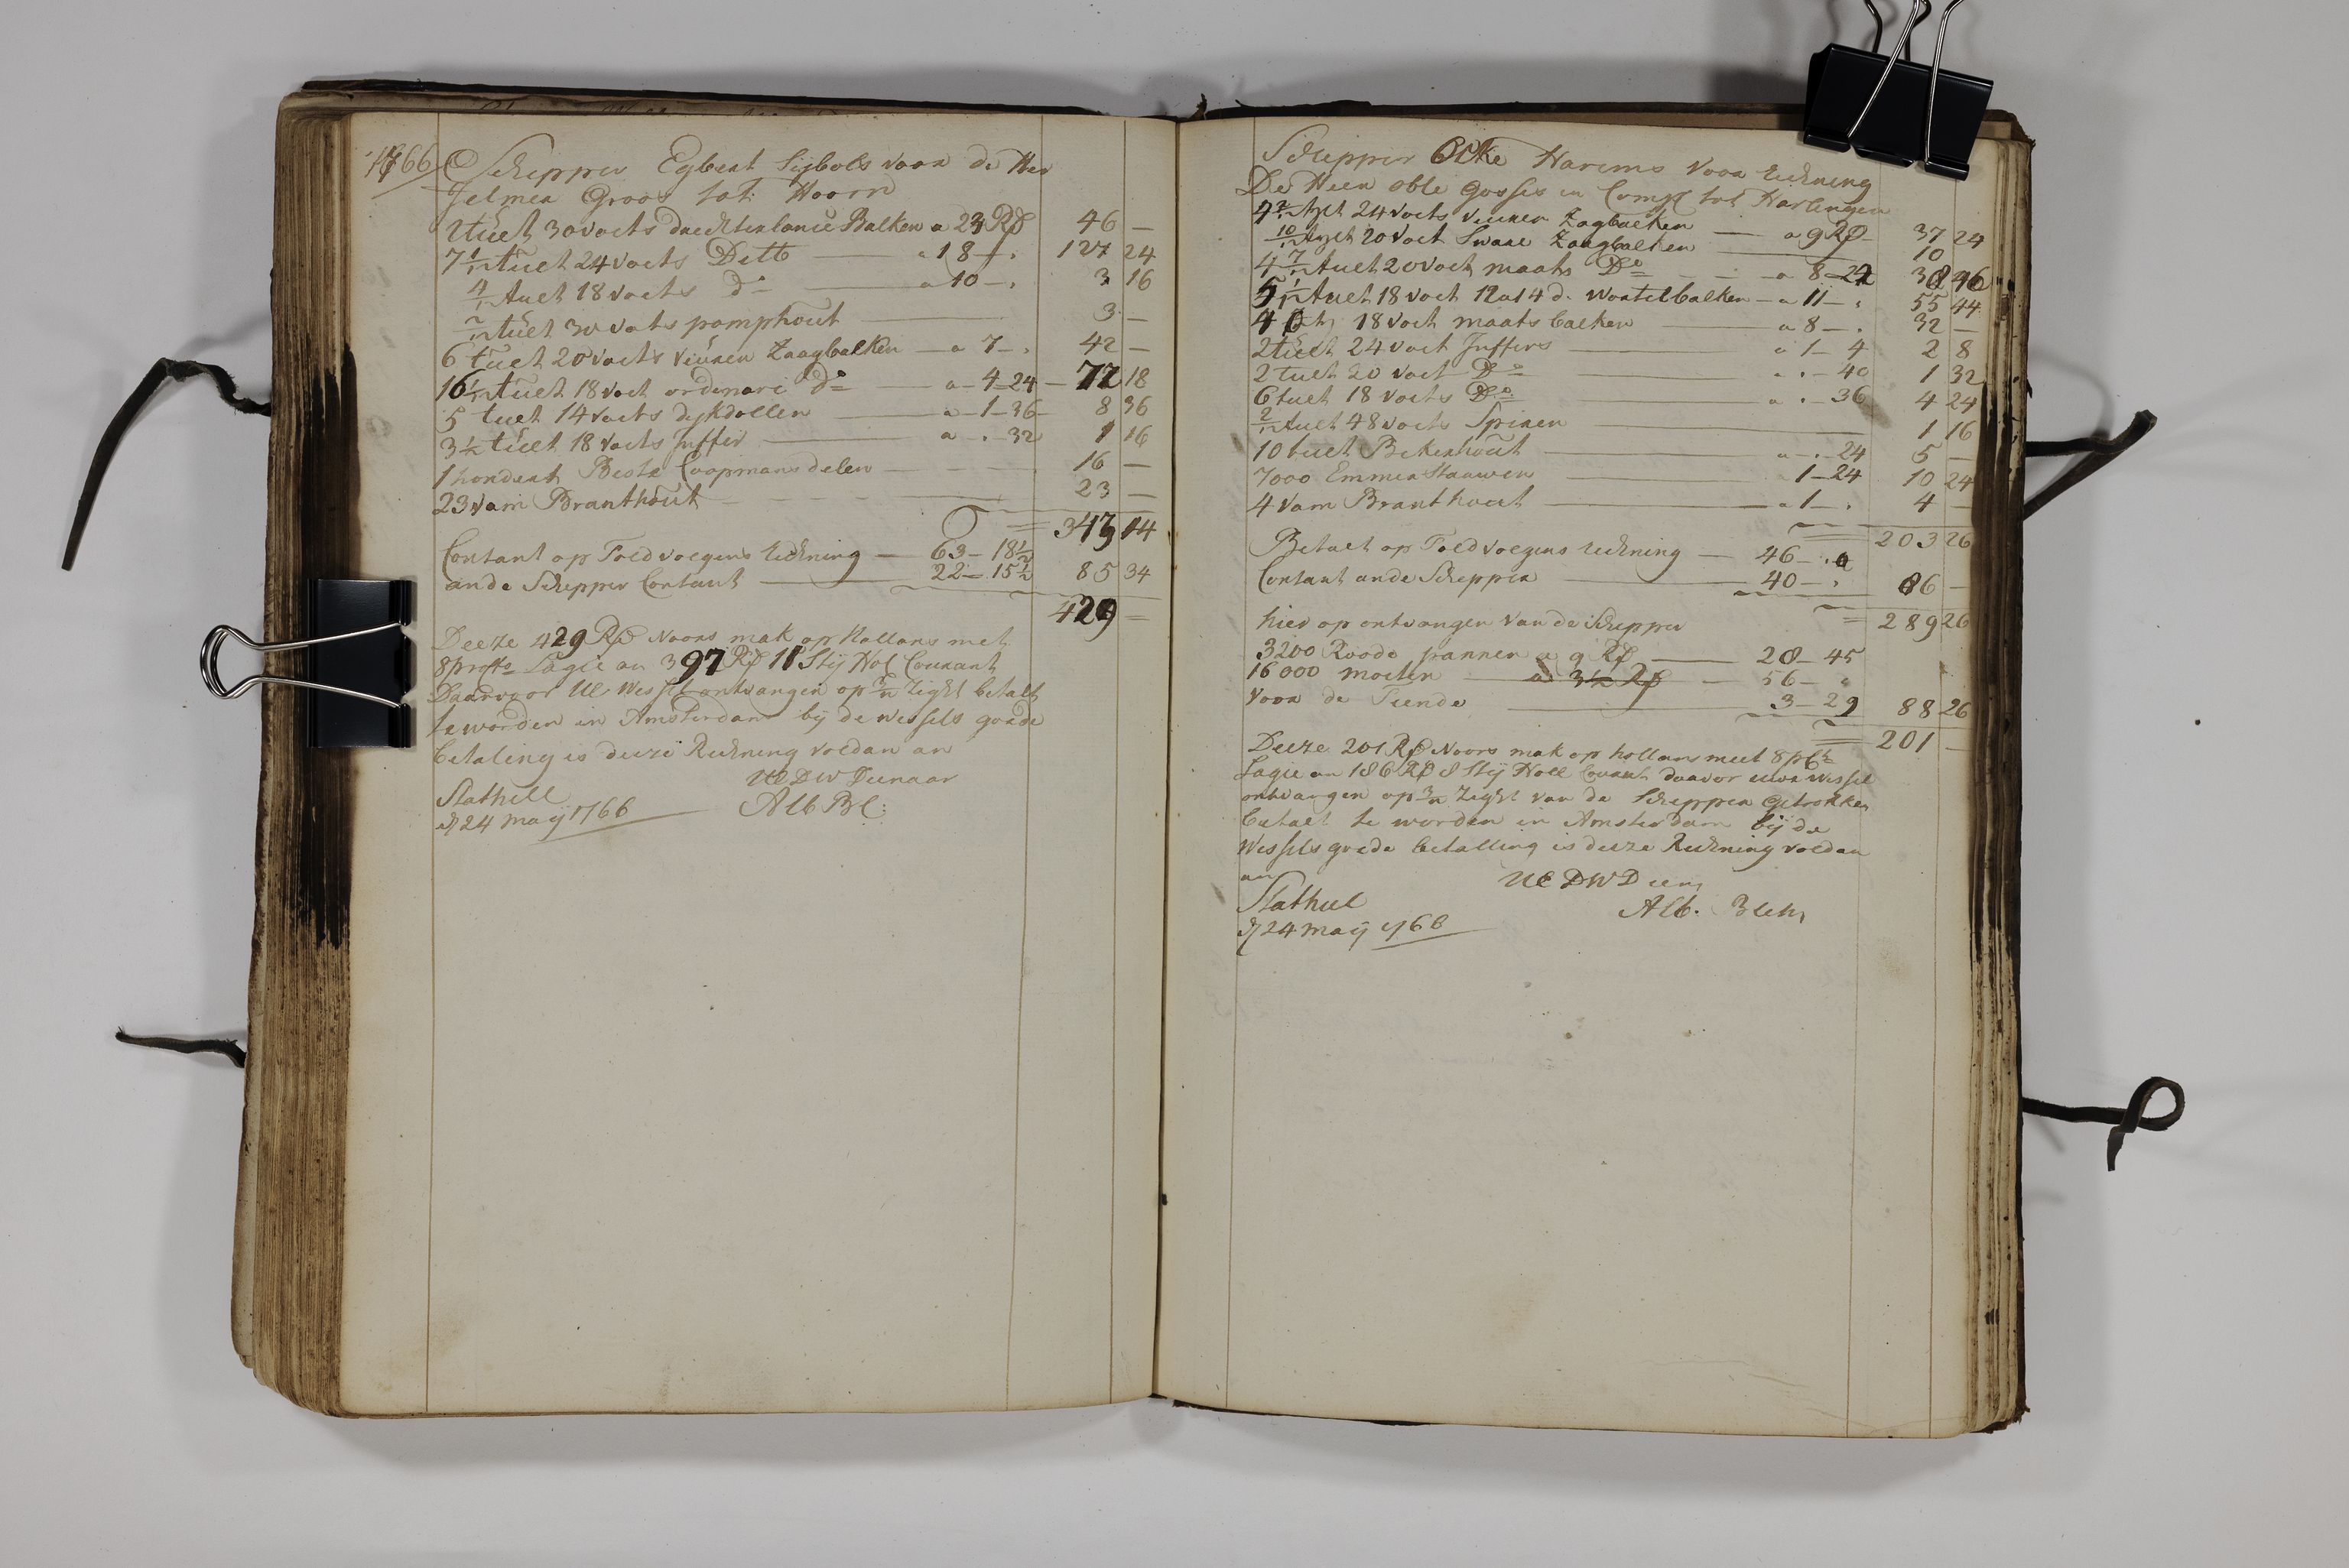 1766 Schipper Egbert Sijbols voor de Heer
Jelmer Groos tot Hoorn
2 tuelt 30 voets duechtenlonie Balken a 23 Rd 46 —
7 1/12 tuelt 24 voets Ditto — a 18 — . 127 24
4/12 tuelt 18 voets do — a 10 — . 3 16
2/12 tuelt 30 voets pomphout — 3 —
6 tuelt 20 voets vieuren Zaagbalken — a 7 — . 42 —
16 1/12 tuelt 18 voet ordenari do — a — 4 — 24 — 72 18
5 tuelt 14 voets dijkdollen — a — 1 — 36 — 8 36
3 1/2 tuelt 18 voets Juffer — a . — 32 1 16
1 hondert Beste Coopmansdelen — 16 —
23 vam Branthout — 23 —
343 14
Contant op Toed voegens reekning — 63 — 18 1/2
ande Schipper Contant — 22 — 15 1/2 85 34
429 —
Deeze 429 Rd Noors mak op Hollans met
8 procto Lagie an 397 Rd 11 Stij Hol Courant
Daarvoor UE Wessel ontvangen op 3/m Zight betalt
te worden in Amsterdam bij de wessels goede
betaling is deeze Reekning voldan an
UE DW Dienaar
Stathell
d 24 maij 1766 Alb Bl:
Schipper Ocke Harems voor reekning
De Heer oble Gosses en Comp tot Harlingen
4 2/12 tylt 24 voets vieuren Zagbalken — a 9 Rd — 37 24
10/12 tylt 20 voet Swaare Zaagbalken — 10
4 7/12 tuelt 20 voet maats Do — a 8 — 24 38 46
5 1/12 tuelt 18 voet 12 a 14 d. Wortelbalken — a 11 — . 55 44
4 18 voet maats balken — a 8 — . 32 —
2 tuelt 24 voet Juffers — a 1 — 4 2 8
2 tuelt 20 voet Do — a . — 40 1 32
6 tuelt 18 voets Do — a . — 36 4 24
2/12 tuelt 48 voets Spiren — 1 16
10 tuelt Birkenhout — a — . — 24 5 —
7000 Emmer Stauwen — 1 — 24 10 24
4 vam Branthout — a 1 — . 4 —
203 26
Betaelt op Toed voegens reekning — 46 — .
Contant ande Schipper — 40 — . 86 —
289 26
hier op ontvangen van de Schipper
3200 Roode pannen a 9 Rd — 28 — 45
16000 moeten a 3 1/2 Rd — 56 —
voor de Tiende — 3 — 29 88 26
201 —
Deeze 201 Rd Noors mak op hollans meet 8 pC to
Lagie an 186 Rd 8 Stij Holl Courant daavor eene wessel
ontvangen op 3/m Zight van de Schipper getrokken
betaelt te worden in Amsterdam bij de
Wessels goede betalling is deeze Reekning voldan
an
UE DW Dien
Stathiel Alb. Bleh
d 24 maij 1766